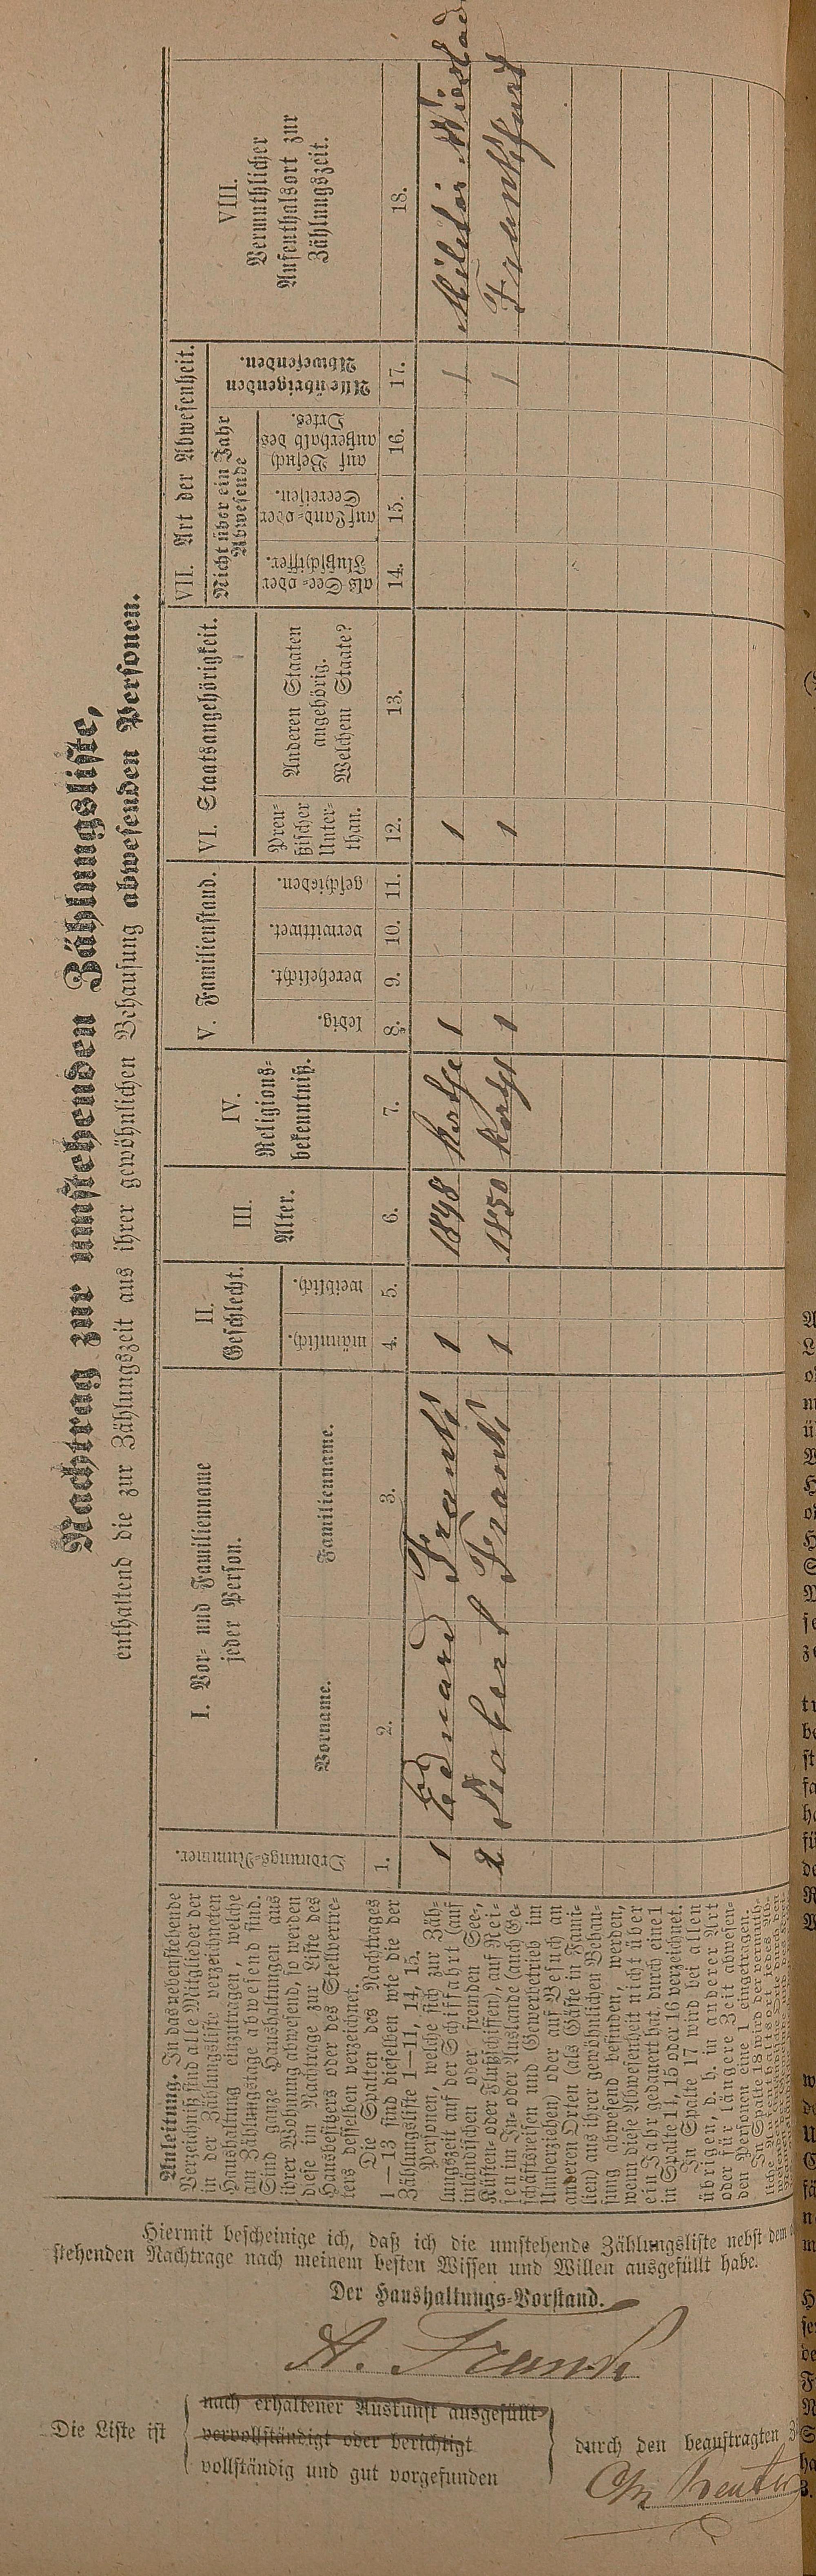 Nachtrag zur umstehenden Zählungsliste,
enthaltend die zur Zählungszeit aus ihrer gewöhnlichen Behausung abwesenden Personen.
Anleitung. In das nebenstehende
Verzeichniß sind alle Mitglieder der
in der Zählungsliste verzeichneten
Haushaltung einzutragen, welche
am Zählungstage abwesend sind.
Sind ganze Haushaltungen aus
ihrer Wohnung abwesend, so werden
diese im Nachtrage zur Liste des
Hausbesitzers oder des Stellvertre-
ters desselben verzeichnet.
Die Spalten des Nachtrages
1—13 sind dieselben wie die der
Zählungsliste 1—11, 14, 15.
Personen, welche sich zur Zäh-
lungszeit auf der Schifffahrt (auf
inländischen oder fremden See-,
Küsten- oder Flußschiffen), auf Rei-
sen im In- oder Auslande (auch Ge-
schäftsreisen und Gewerbetrieb im
Umherziehen) oder auf Besuch an
anderen Orten (als Gäste in Fami-
lien) aus ihrer gewöhnlichen Behau-
sung abwesend befinden, werden,
wenn diese Abwesenheit nicht über
ein Jahr gedauert hat, durch eine 1
in Spalte 14, 15 oder 16 verzeichnet.
In Spalte 17 wird bei allen
übrigen, d. h. in anderer Art
oder für längere Zeit abwesen-
den Personen eine 1 eingetragen.
In Spalte 18 wird der vermuth-
liche Aufenthaltsort jedes Ab-
Ordnungs-Nummer.
I. Vor- und Familienname
jeder Person.
Vorname.
Familienname.
II.
Geschlecht.
männlich.
weiblich.
III.
Alter.
IV.
Religions-
bekenntniß.
V. Familienstand.
ledig.
verehelicht.
verwittwet.
geschieden.
VI. Staatsangehörigkeit.
Preu-
ßischer
Unter-
than.
Anderen Staaten
angehörig.
Welchem Staate?
VII. Art der Abwesenheit.
Nicht über ein Jahr
Abwesende
als See- oder
Flußschiffer.
auf Land- oder
Seereisen.
auf Besuch
außerhalb des
Ortes.
Alle übrigen
Abwesenden.
VIII.
Vermuthlicher
Aufenthalsort zur
Zählungszeit.
1. 2. 3. 4. 5. 6. 7. 8. 9. 10. 11. 12. 13. 14. 15. 16. 17. 18.
1 Eduard Frank 1 1848 Kathe 1 1 1 Militär Wiesbad
2 Robert Frank 1 1850 Kath 1 1 1 Frankfurt
Hiermit bescheinige ich, daß ich die umstehende Zählungsliste nebst dem
stehenden Nachtrage nach meinem besten Wissen und Willen ausgefüllt habe.
Der Haushaltungs-Vorstand.
A. Frank
Die Liste ist
nach erhaltener Auskunft ausgefüllt
vervollständigt oder berichtigt
vollständig und gut vorgefunden
durch den beauftragten